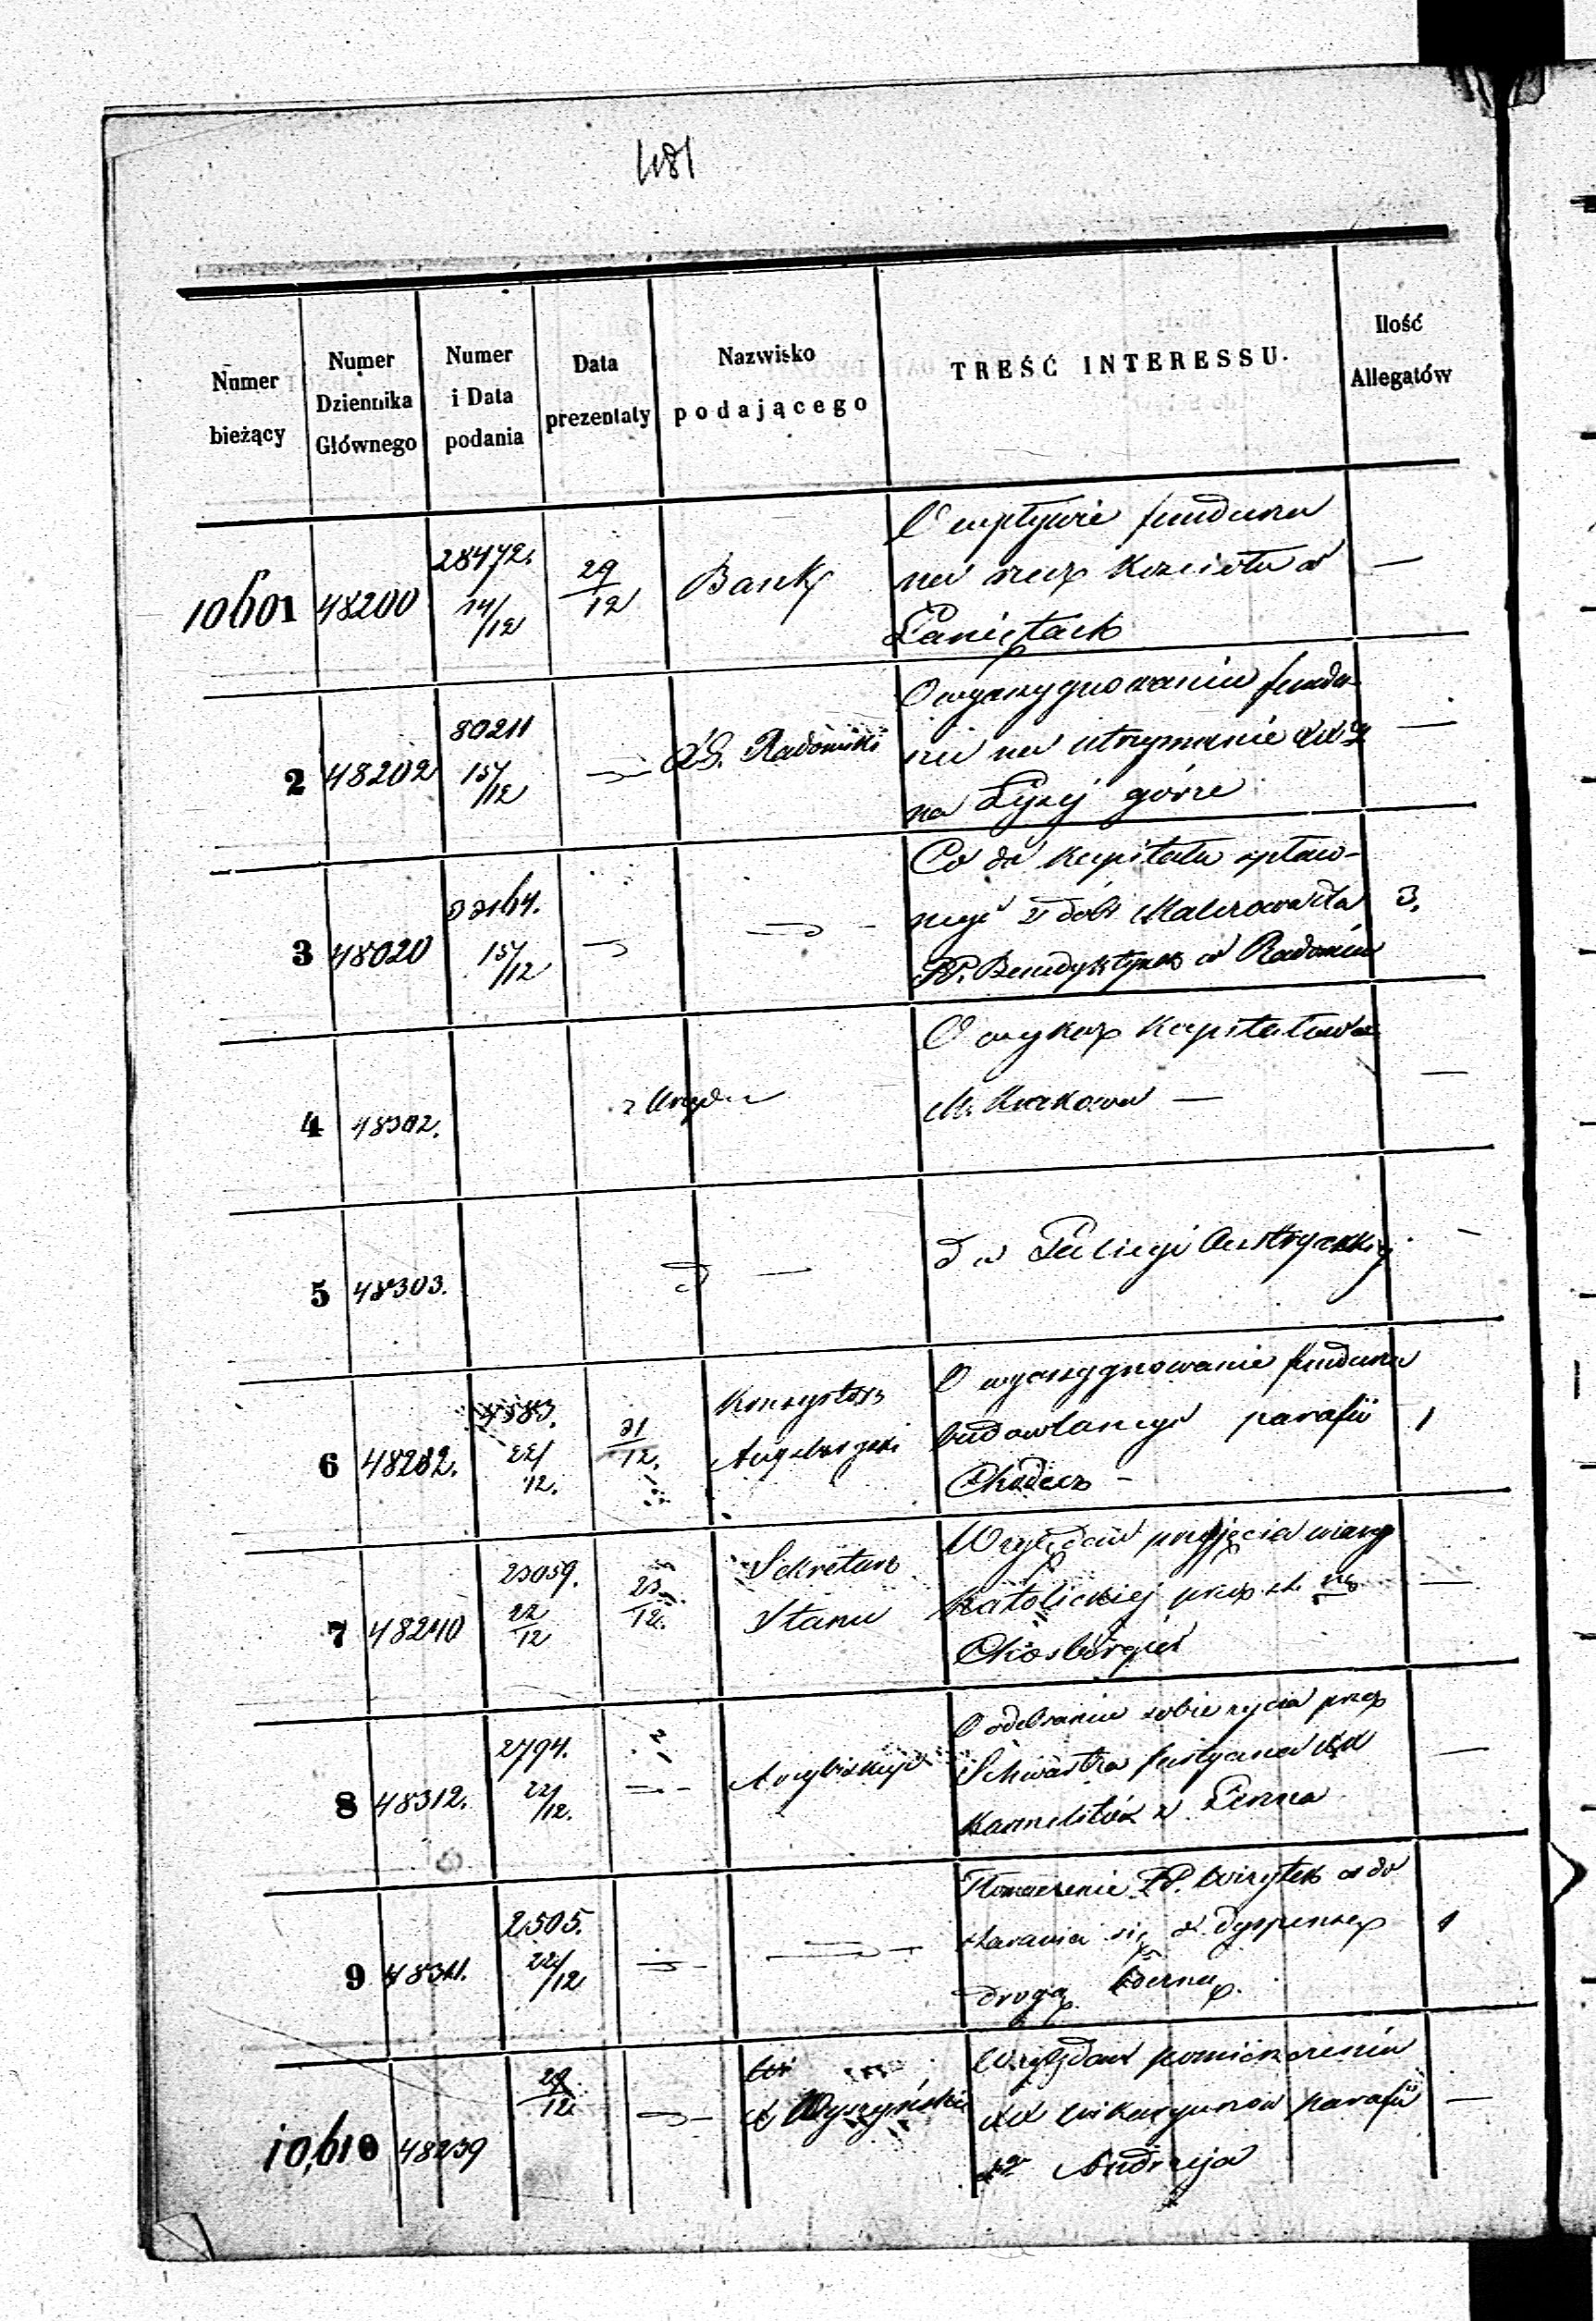 1181
Numer bieżący
Numer Dziennika Głównego
Numer i Data podania
Data prezentaty
Nazwisko podającego
TREŚĆ INTERESSU.
Ilość Allegatów
10601 48200 28472. 14/12 29/12 Bank
O wpływie funduszu
na rzecz Kościoła w
Łaniętach —
2 48202 80211 15/12 R.G. Radomski
O wyasygnowaniu fundu-
szu na utrzymanie XX
na Łysej górze —
3 48020 15/12
Co do Kapitału spław-
nego z dóbr dla
PP. Benedyktynek w Radomiu 3.
4 48302. z Urzędu
O wykaz Kapitałów
M. Krakowa — —
5 48303. d —
d w Galicyi Austryackiej —
6 48282. 4583. 22/12. 31/12. Konsystorz
Augsburgski
O wyasygnowanie funduszu
budowlanego parafii
Chodecz — 1
7 48240 23059. 22/12 23/12. Sekretarz
Stanu
Względem przyjęcia wiary
Katolickiej przez —
8 48312. 2794. 22/12. Arcybiskup
O odebraniu sobie życia przez
XX
Karmelitów z —
9 48311. 2505. 22/12
Tłomaczenie PP. Wizytek co do
starania się o dyspensę
drogą 1
10,610 48239 29/12 X Wyszyński
Względem pomieszczenia
XX Wikaryuszów parafii
Sgo Andrzeja —